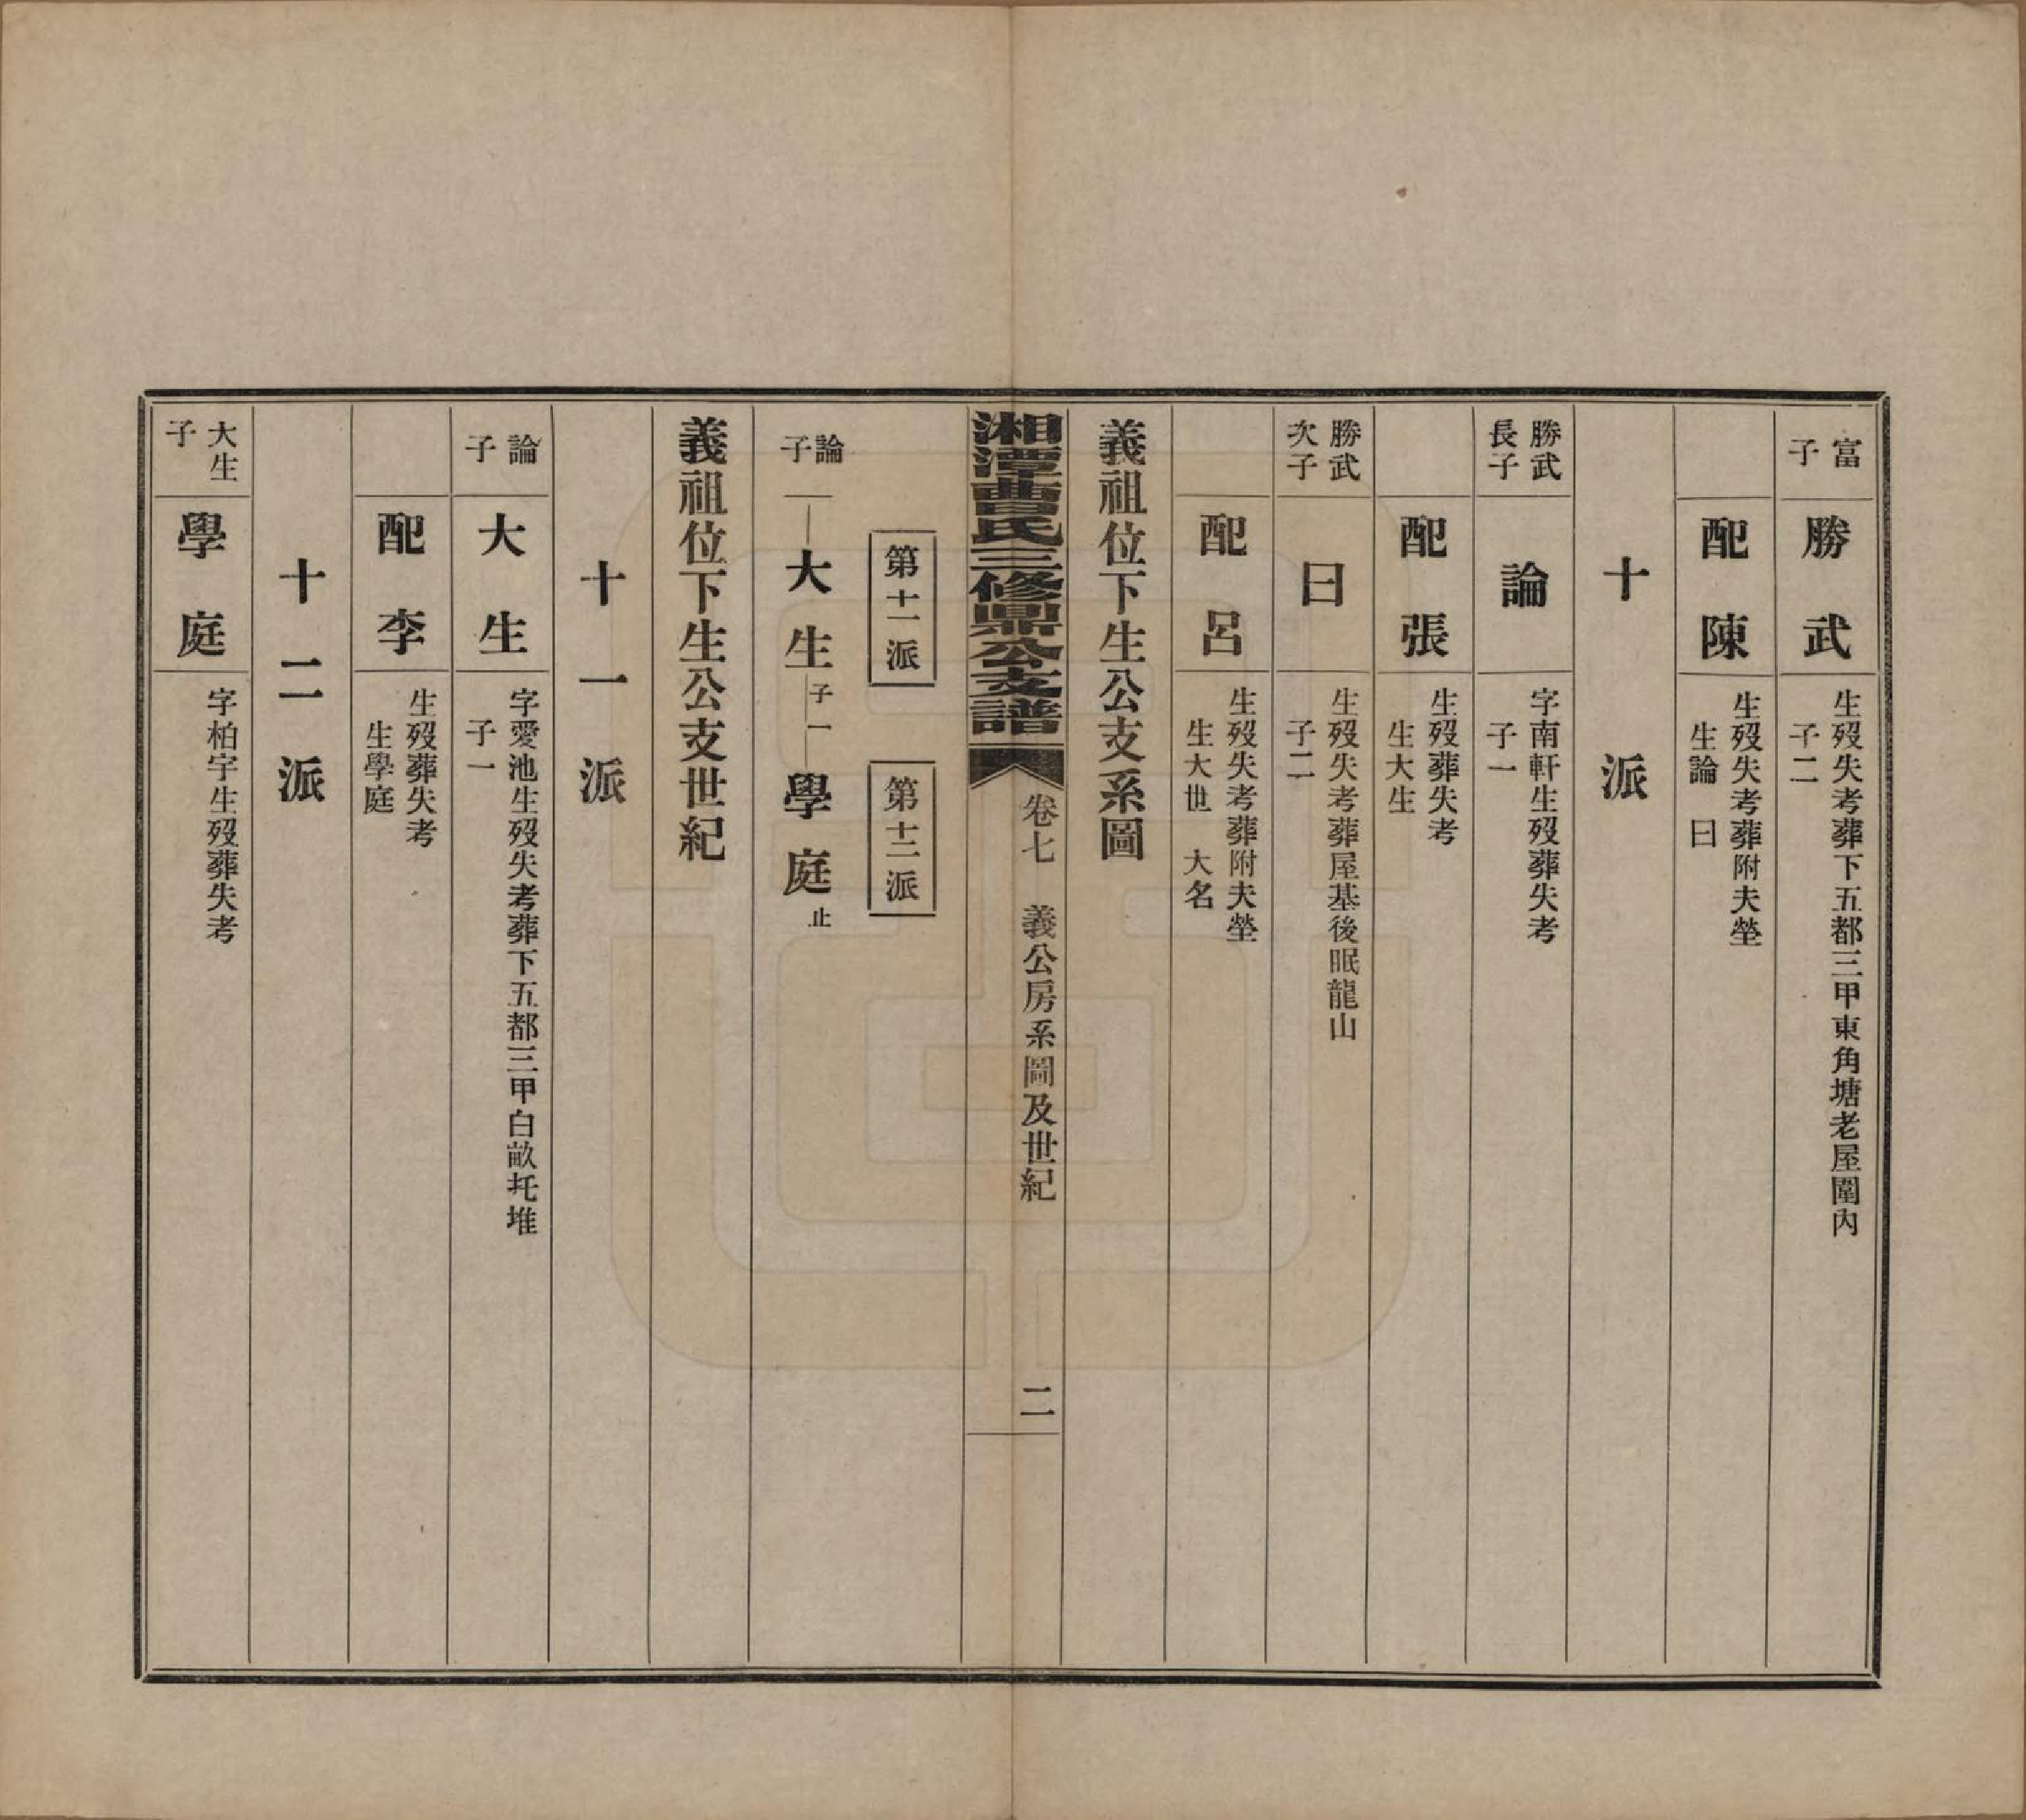 富子
勝武
生歿失考葬下五都三甲東角塘老屋圍內
子二
配陳
生歿失考葬附夫塋
生論 曰
十派
勝武長子
論
字南軒生歿葬失考
子一
配張
生歿葬失考
生大生
勝武次子
曰
生歿失考葬屋基後眠龍山
子二
配呂
生歿失考葬附夫塋
生大世 大名
義祖位下生公支系圖
湘潭曹氏三修鼎公支譜
卷七 義公房系圖及世紀
二
第十一派 第十二派
論子
大生 子一 學庭 止
義祖位下生公支世紀
十一派
論子
大生
字愛池生歿失考葬下五都三甲白畝圫堆
子一
配李
生歿葬失考
生學庭
十二派
大生子
學庭
字柏宇生歿葬失考